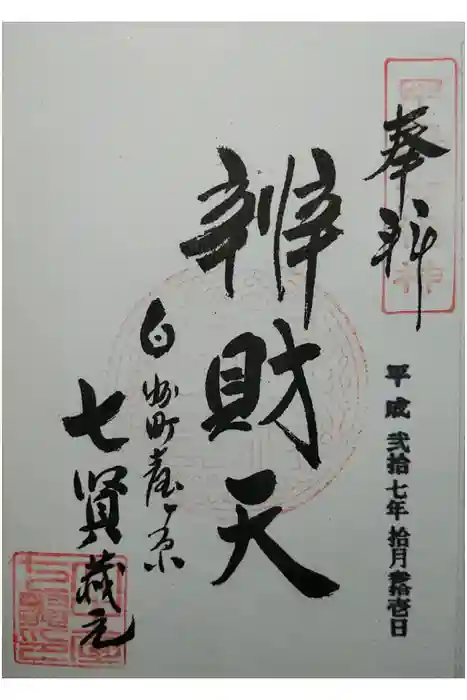 奉拝
平成弐拾七年拾月参拾壱日
辨財天
白州町臺ヶ原
七賢蔵元